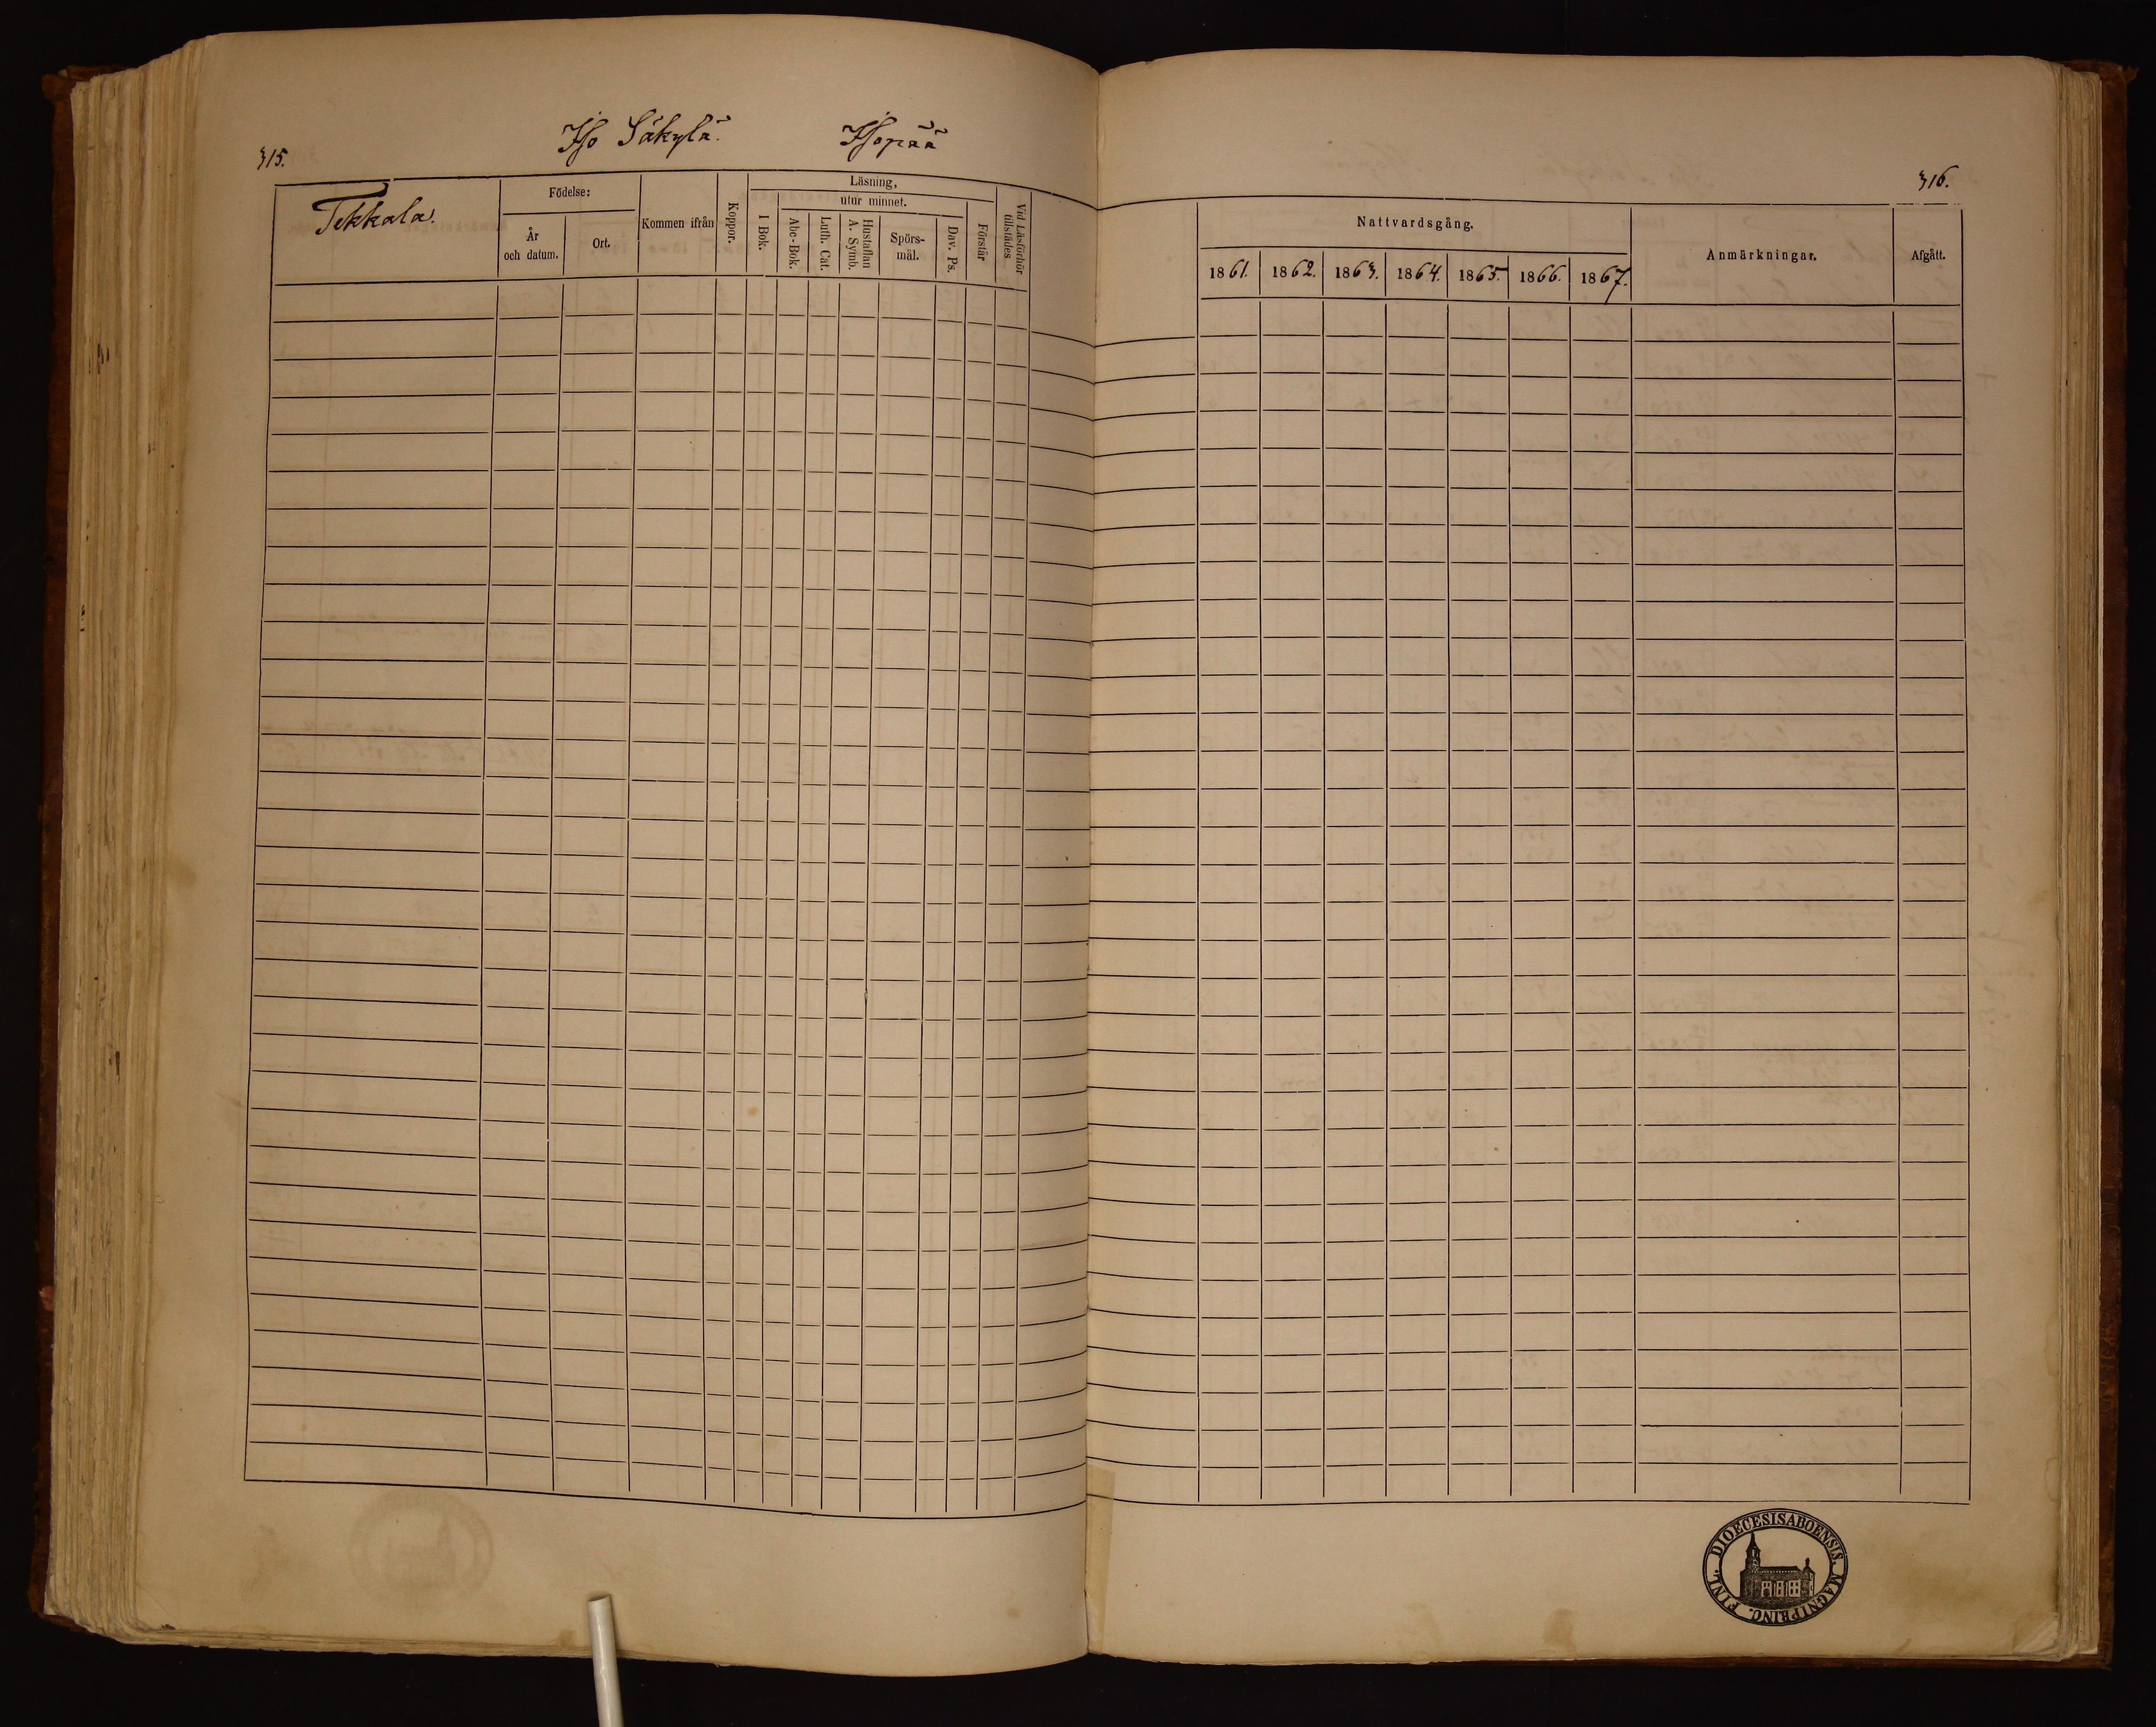 315.
Iso Säkylä. Isopää
Tekkala.
Födelse:
År och datum.
Ort.
Kommen ifrån
Koppor.
Läsning,
I Bok.
utur minnet.
Abc-Bok.
Luth. Cat.
Hustaflan A. Symb.
Spörs-
mål.
Dav. Ps.
Förstår
Vid Läsförhör tillstädes
316.
Nattvardsgång.
1861. 1862. 1863. 1864. 1865. 1866. 1867.
Anmärkningar.
Afgått.
DIOECESIS ABOENSIS. MAGNI PRINC. FINL.